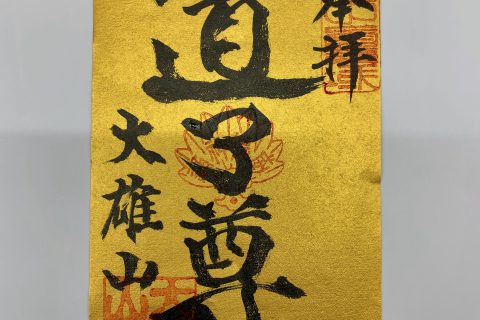 奉拝
道了尊
大雄山